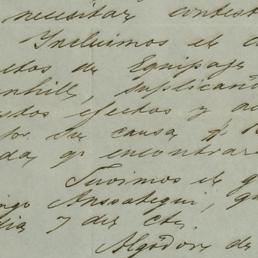 necesitar contest
Incluimos el c
etos de Equipaje
nhill, suplican
stos efectos y a
por su causa y
da qe encontrar
Tuvimos el g
ngo Anssategui, q
cia 7 del cte.
Algodon de